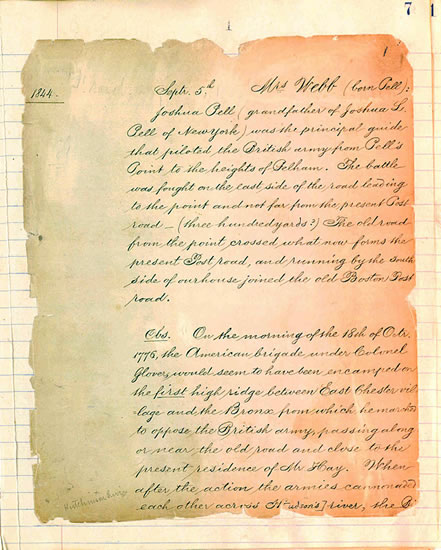 7 1
1
1844.
Septr. 5th Mrs Webb (born Pell):
Joshua Pell (grandfather of Joshua L.
Pell of New York) was the principal guide
that piloted the British army from Pell's
Point to the heights of Pelham. The battle
was fought on the east side of the road leading
to the point and not far from the present Post
road — (three hundred yards?) The old road
from the point crossed what now forms the
present Post road, and running by the south
side of our house joined the old Boston Post
road.
Obs. On the morning of the 18th of Octr.
1776, the American brigade under Colonel
Glover, would seem to have been encamped on
the first high ridge between East Chester vil-
lage and the Bronx from which he marched
to oppose the British army, passing along
or near, the old road and close to the
present residence of Mr Hay. When
after the action the armies cannonaded
each other across H[udson's] river, the